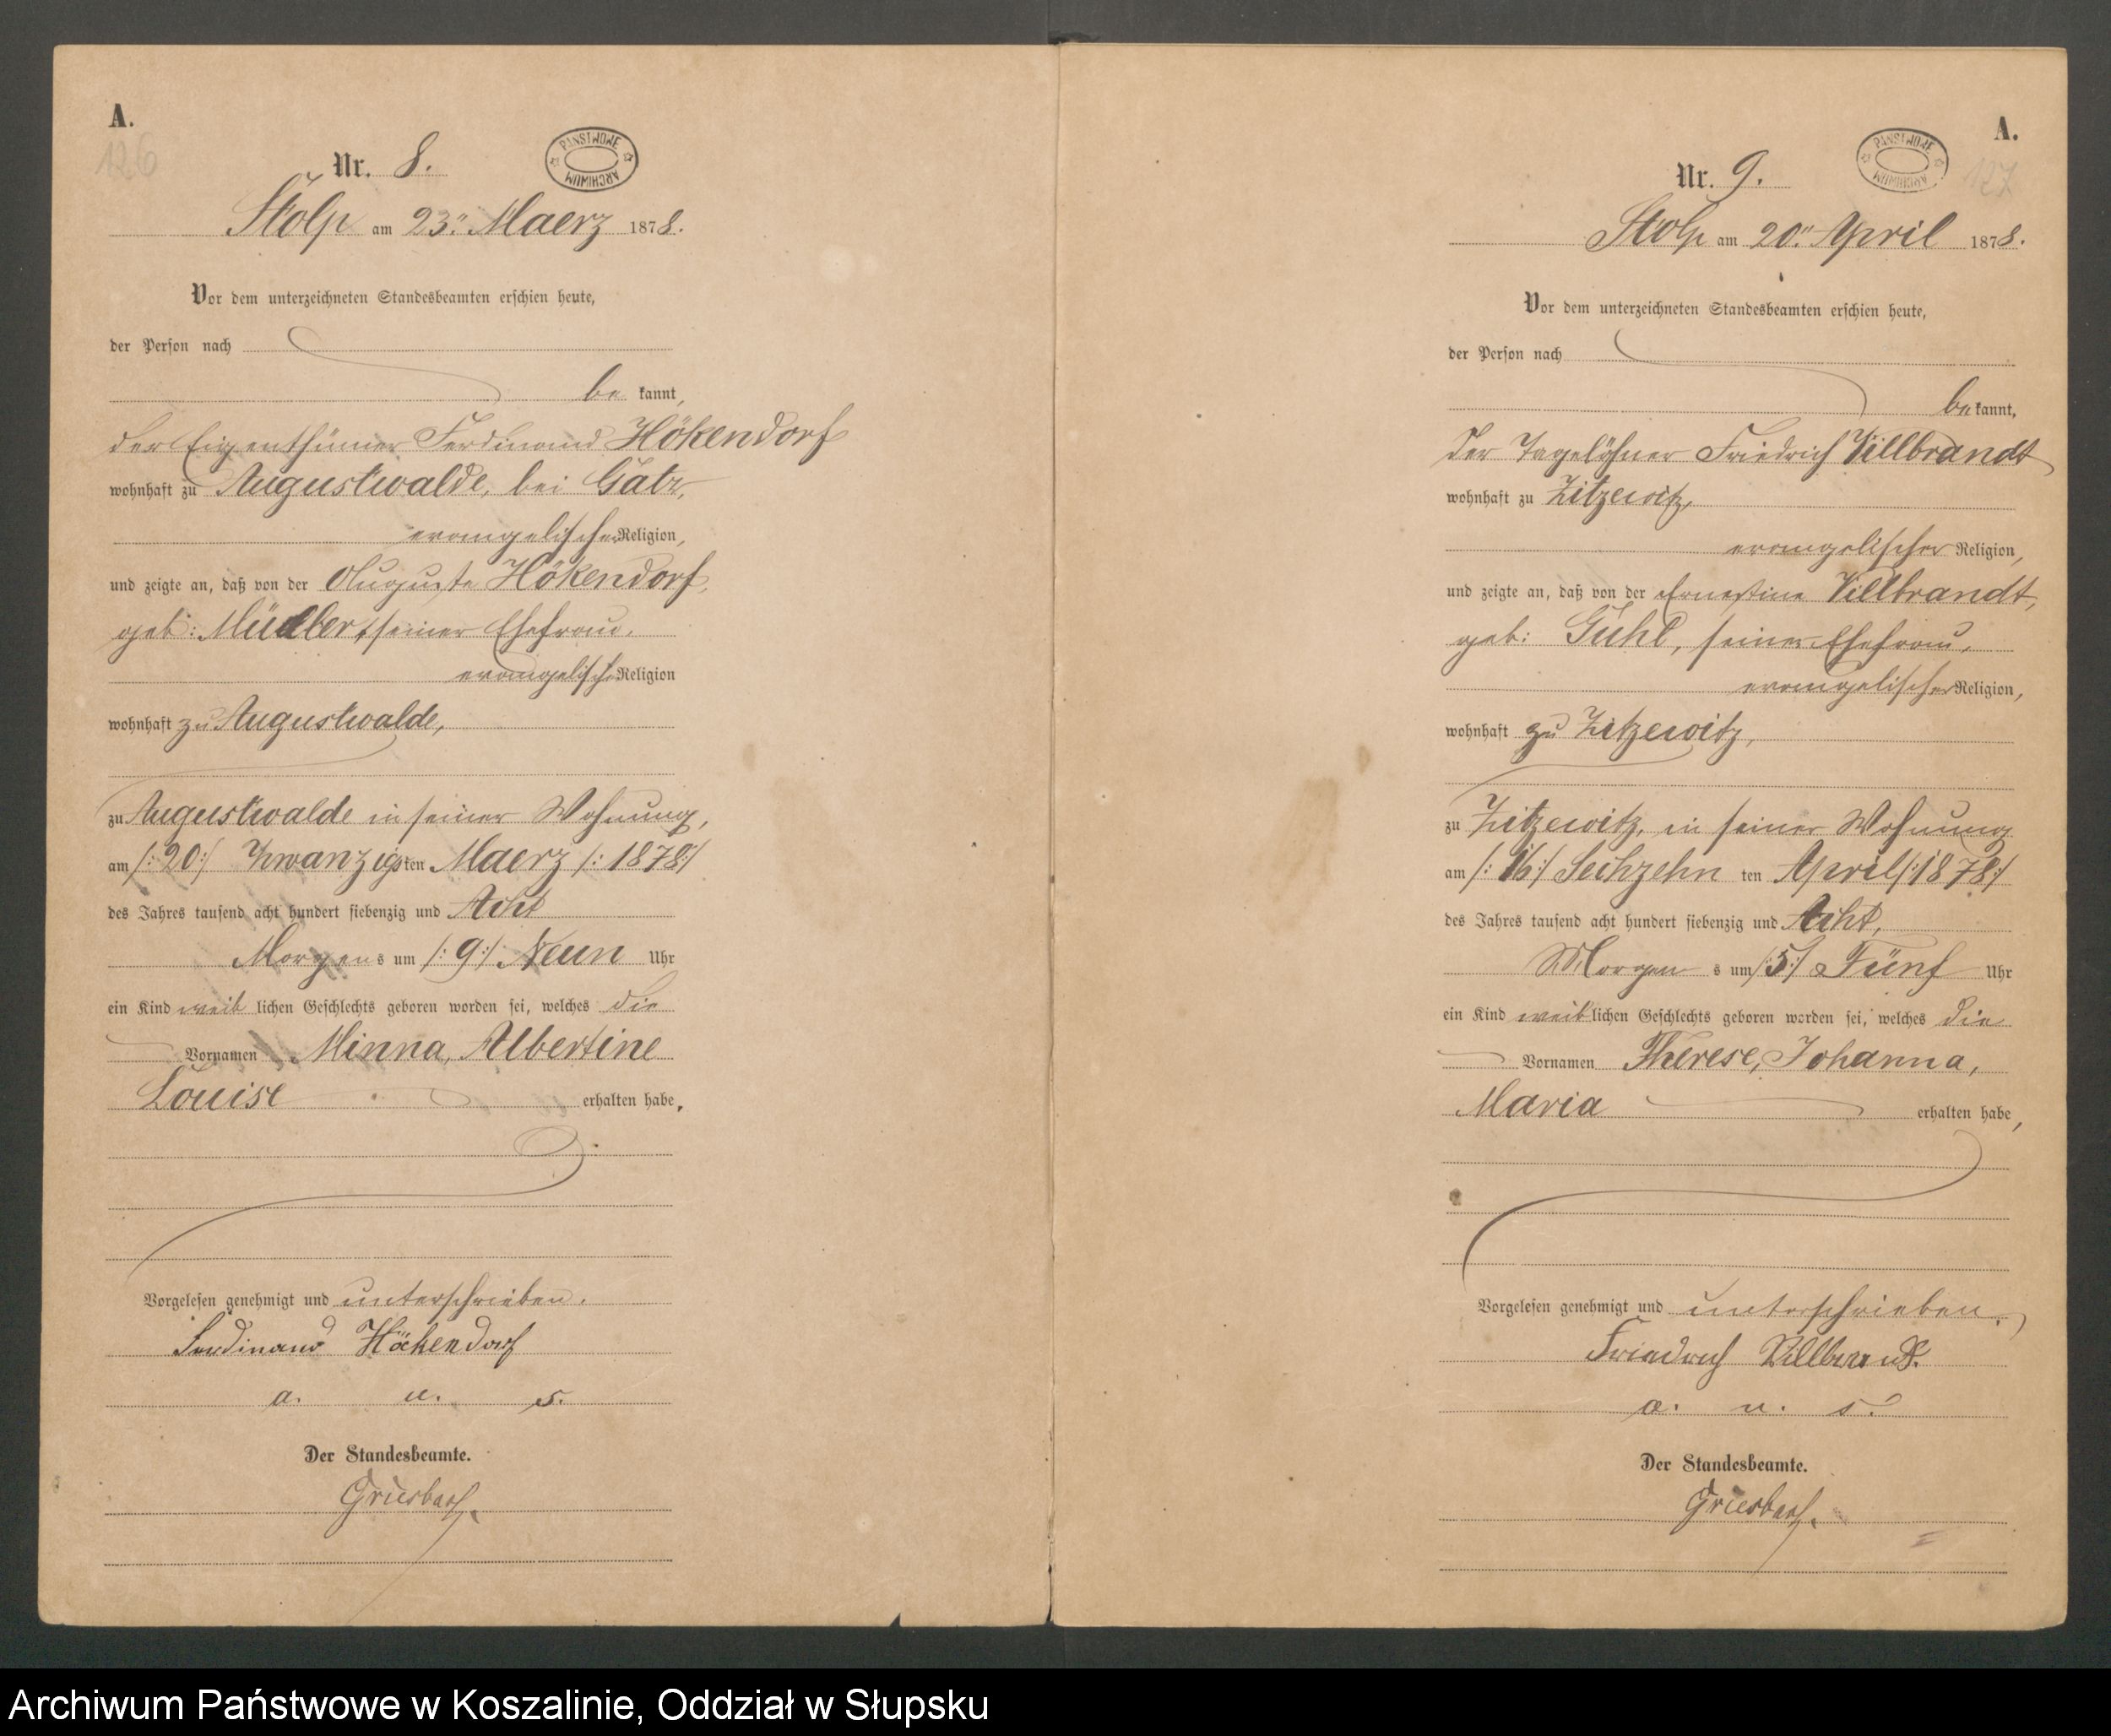 A.
126
Nr. 8.
PAŃSTWOWE ARCHIWUM
Stolp am 23ten Maerz 1878.
Vor dem unterzeichneten Standesbeamten erschien heute,
der Person nach
be kannt,
der Eigenthümer Ferdinand Hökendorf
wohnhaft zu Augustwalde, bei Gatz,
evangelischer Religion,
und zeigte an, daß von der Auguste Hökendorf,
geb: Müller, seiner Ehefrau,
evangelischer Religion
wohnhaft zu Augustwalde,
zu Augustwalde in seiner Wohnung,
am /:20:/ Zwanzigsten Maerz /:1878:/
des Jahres tausend acht hundert siebenzig und Acht
Morgens um /:9:/ Neun Uhr
ein Kind weiblichen Geschlechts geboren worden sei, welches die
Vornamen Minna, Albertine
Louise erhalten habe,
Vorgelesen genehmigt und unterschrieben.
Ferdinand Hökendorf
a. u. s.
Der Standesbeamte.
Griesbach.
A.
127
Nr. 9.
PAŃSTWOWE ARCHIWUM
Stolp am 20ten April 1878.
Vor dem unterzeichneten Standesbeamten erschien heute,
der Person nach
bekannt,
der Tagelöhner Friedrich Villbrandt
wohnhaft zu Zitzewitz,
evangelischer Religion,
und zeigte an, daß von der Ernestine Villbrandt,
geb: Guhl, seiner Ehefrau,
evangelischer Religion,
wohnhaft zu Zitzewitz,
zu Zitzewitz, in seiner Wohnung
am /:16:/ Sechzehn ten April /:1878:/
des Jahres tausend acht hundert siebenzig und Acht,
Morgens um /:5:/ Fünf Uhr
ein Kind weiblichen Geschlechts geboren worden sei, welches die
Vornamen Therese, Johanna,
Maria erhalten habe,
Vorgelesen genehmigt und unterschrieben.
Friedrich Villbrandt.
a. u. s.
Der Standesbeamte.
Griesbach.
Archiwum Państwowe w Koszalinie, Oddział w Słupsku